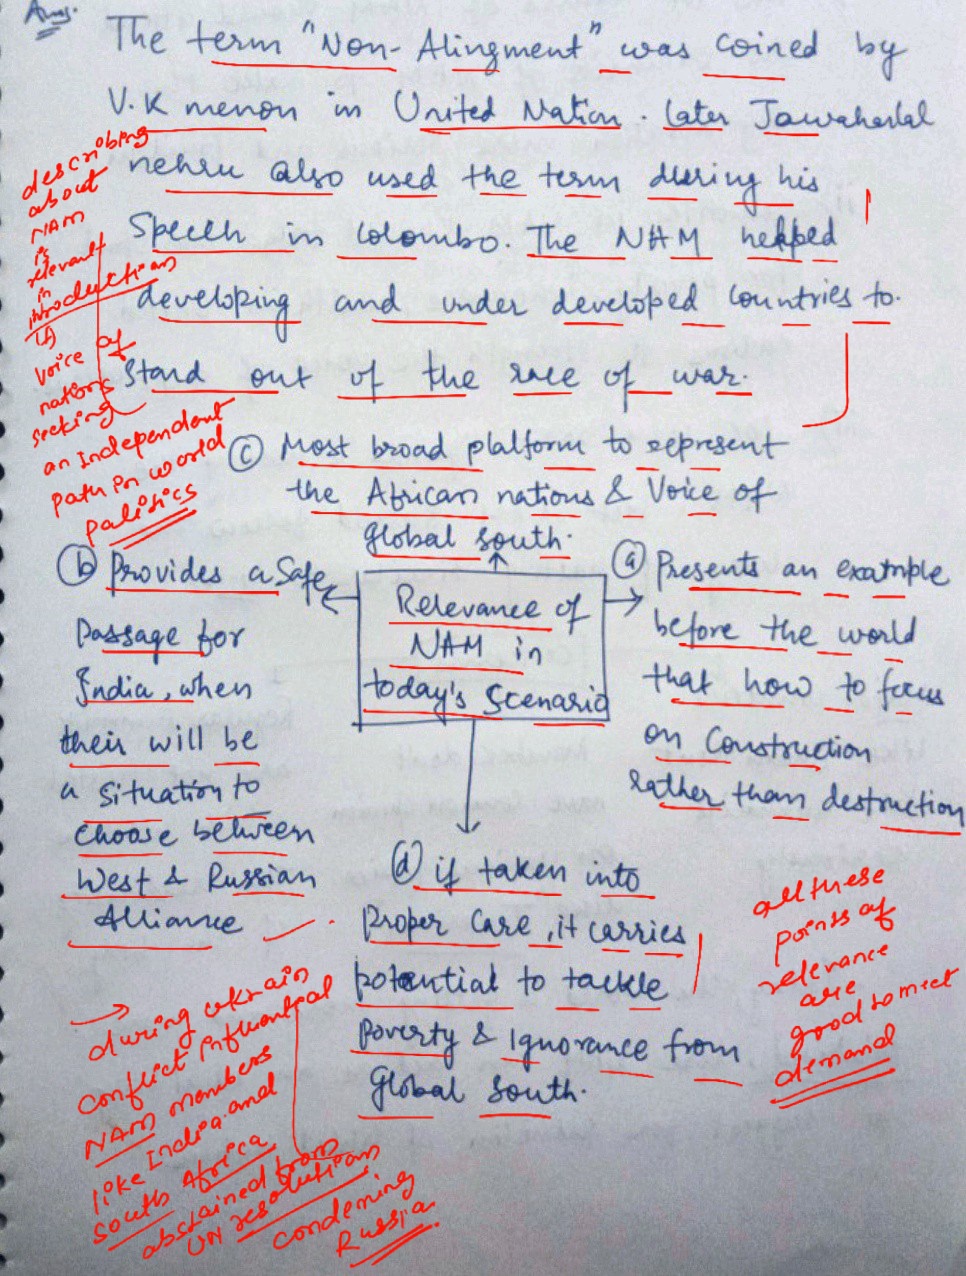 Ans.
The term "Non-Alingment" was coined by
V.K menon in United Nation. Later Jawaharlal
nehru also used the term during his
Speech in colombo. The NAM helped
developing and under developed countries to
Stand out of the race of war.
describing
about
NAM
is
relevant
in
introduction
voice of
nations
seeking
an independent
path in world
palitics
(c) Most broad platform to represent
the African nations & Voice of
Global South.
(b) Provides a safe
Passage for
India, when
their will be
a situation to
choose between
West & Russian
Alliance
Relevance of
NAM in
today's Scenario
(a) Presents an example
before the world
that how to focus
on Construction
rather than destruction
(d) if taken into
Proper Care, it carries
potential to tackle
Poverty & Ignorance from
Global South.
all these
points of
relevance
are
good to meet
demand
→ during ukrain
conflict influential
NAM members
like India and
south Africa
abstained from
UN resolution
condeming
Russia.